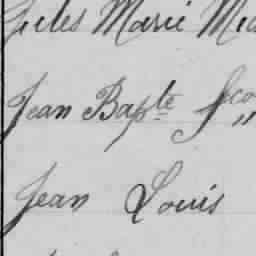 Jules Marie
Jean Bapte Fco
Jean Louis